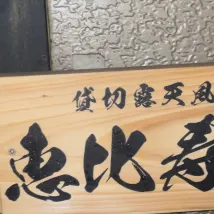 貸切露天風
恵比寿